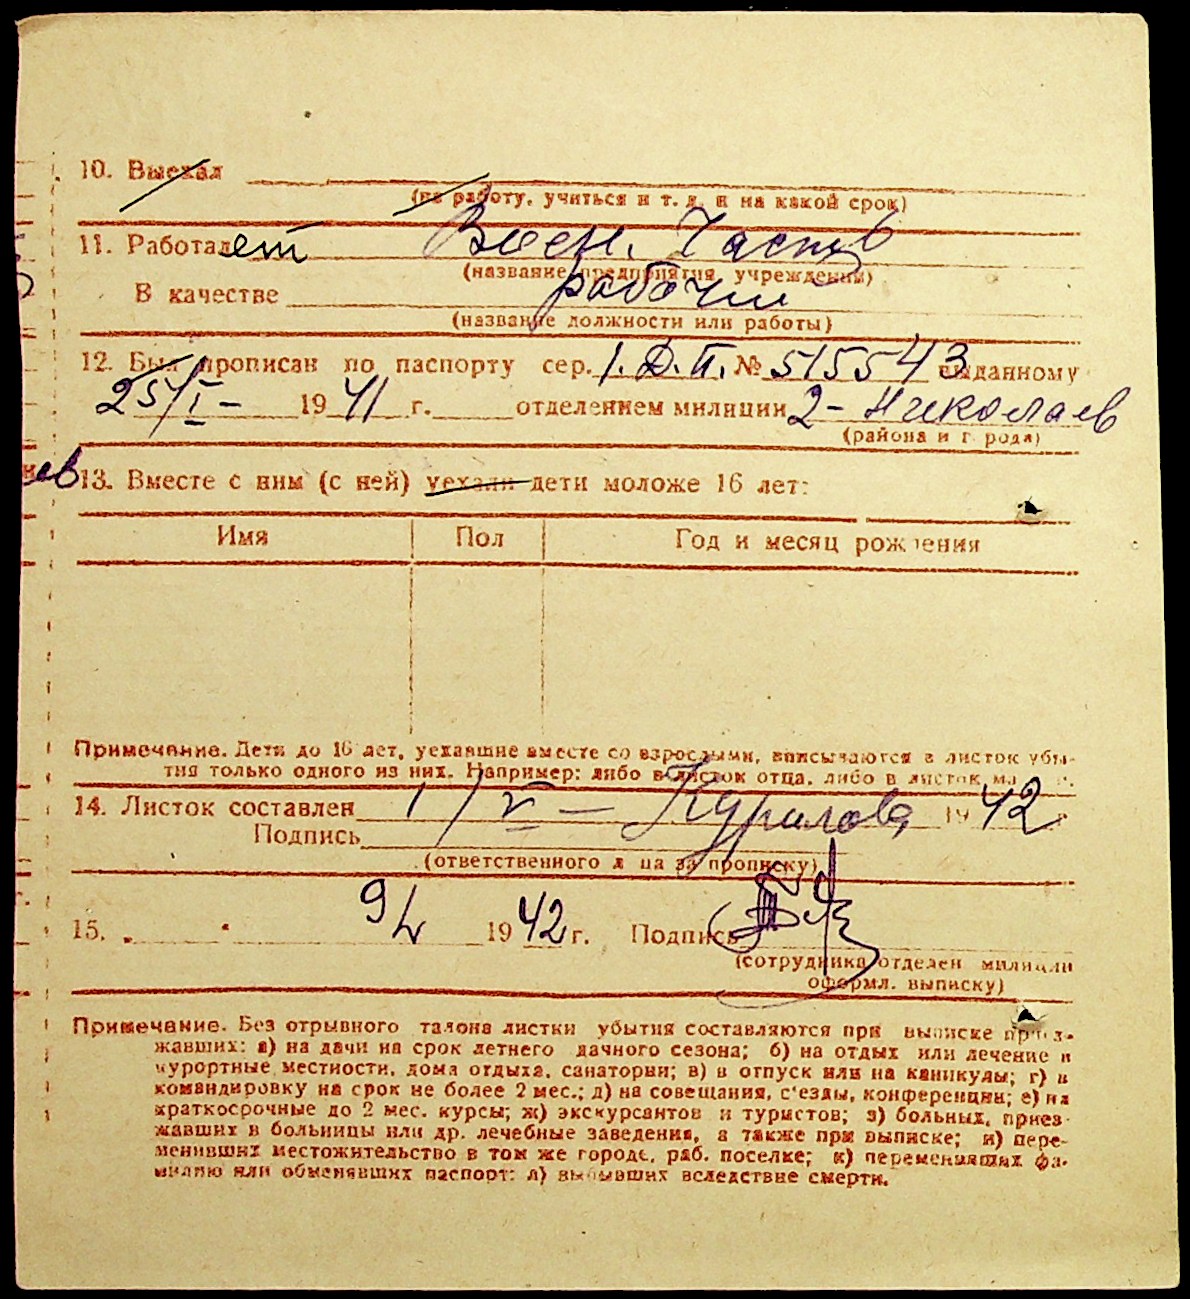 10. Выехал
(на работу, учиться и т. д. и на какой срок)
11. Работает Воен. Часть
(название предприятия учреждения)
В качестве рабочий
(название должности или работы)
12. Был прописан по паспорту сер. I. Д. П. № 515543 выданному
25/I - 1941 г. отделением милиции 2 - Николаев
(района и города)
ев
13. Вместе с ним (с ней) уехали дети моложе 16 лет:
Имя Пол Год и месяц рождения
Примечание. Дети до 16 лет, уехавшие вместе со взрослыми, вписываются в листок убы-
тия только одного из них. Например: либо в листок отца, либо в листок
14. Листок составлен 1/V - Курилова 1942
Подпись
(ответственного лица за прописку)
15. 9/V 1942 г. Подпись
(сотрудника отделен милиции
оформл. выписку)
Примечание. Без отрывного талона листки убытия составляются при выписке приез-
жавших: а) на дачи на срок летнего дачного сезона; б) на отдых или лечение в
курортные местности, дома отдыха, санатории; в) в отпуск или на каникулы; г) в
командировку на срок не более 2 мес.; д) на совещания, с'езды, конференции; е) на
краткосрочные до 2 мес. курсы; ж) экскурсантов и туристов; з) больных, приез-
жавших в больницы или др. лечебные заведения, а также при выписке; и) пере-
менивших местожительство в том же городе, раб. поселке; к) переменивших фа-
милию или обменявших паспорт: л) выбывших вследствие смерти.